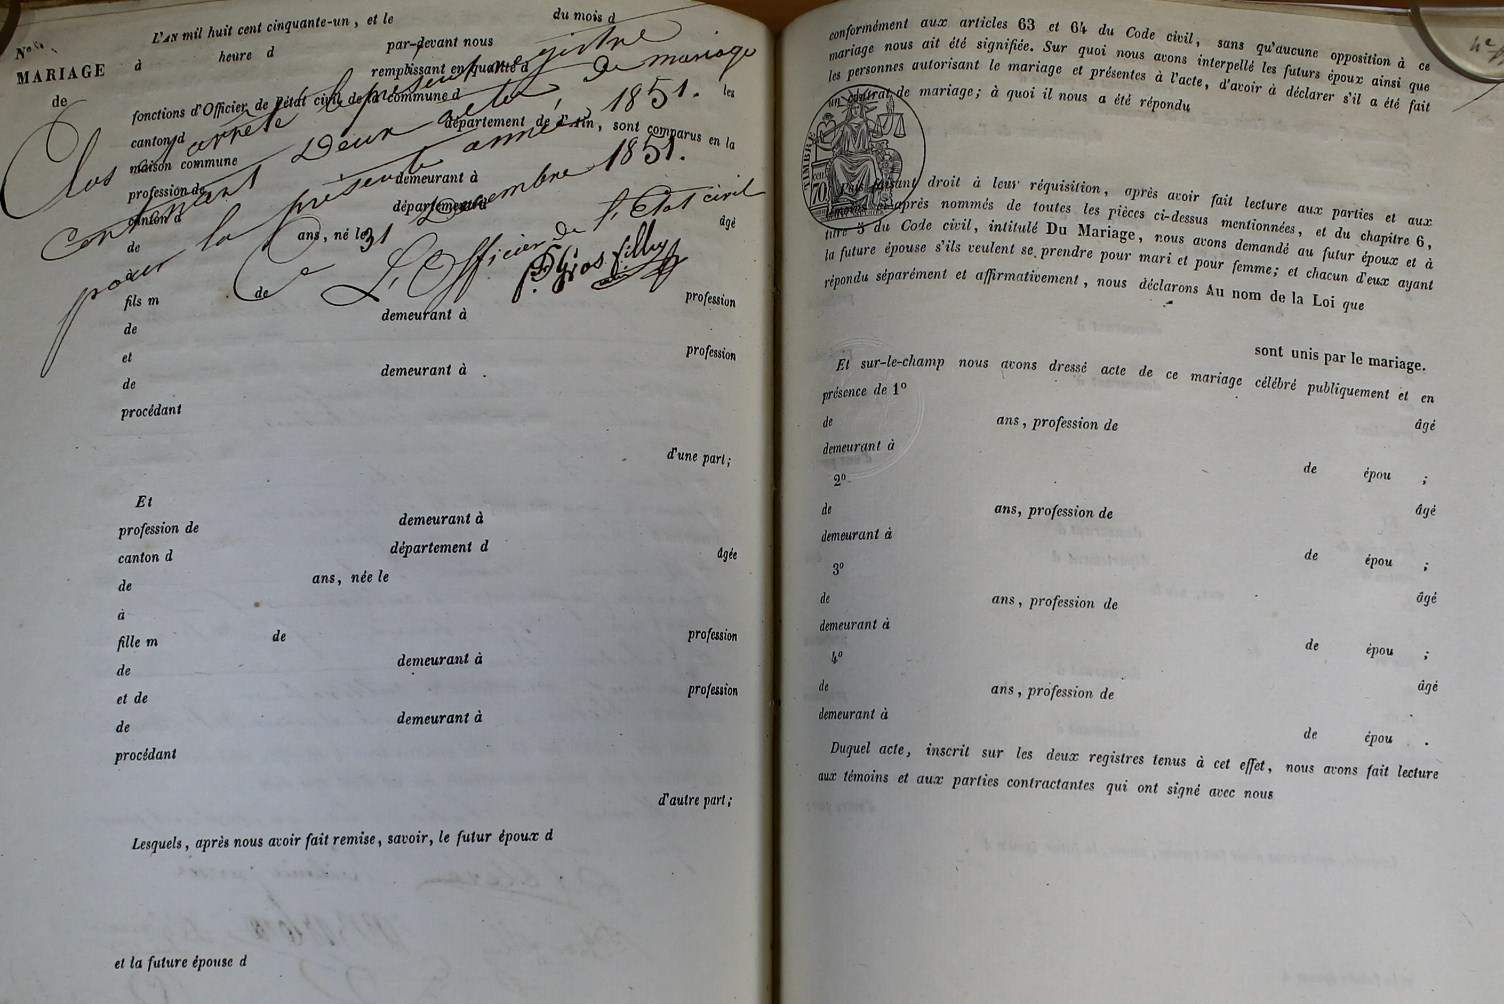 L'AN mil huit cent cinquante-un, et le du mois d
No
MARIAGE
de
à heure d par-devant nous
remplissant en qualité d
fonctions d'Officier de l'état civil de la commune d les
canton d département de l'Ain, sont comparus en la
maison commune
profession de demeurant à
canton d département d âgé
de ans, né le
à
fils m de profession
de demeurant à
et profession
de demeurant à
procédant
d'une part;
Et
profession de demeurant à
canton d département d âgée
de ans, née le
à
fille m de profession
de demeurant à
et de profession
de demeurant à
procédant
d'autre part;
Lesquels, après nous avoir fait remise, savoir, le futur époux d
et la future épouse d
Clos et arrêté le présent registre
contenant Deux actes De mariage
pour la présente année 1851.
Ce 31 Decembre 1851.
L'Officier de l'Etat civil
conformément aux articles 63 et 64 du Code civil, sans qu'aucune opposition à ce
mariage nous ait été signifiée. Sur quoi nous avons interpellé les futurs époux ainsi que
les personnes autorisant le mariage et présentes à l'acte, d'avoir à déclarer s'il a été fait
un contrat de mariage; à quoi il nous a été répondu
TIMBRE
70
Puis faisant droit à leur réquisition, après avoir fait lecture aux parties et aux
témoins ci-après nommés de toutes les pièces ci-dessus mentionnées, et du chapitre 6,
titre 5 du Code civil, intitulé Du Mariage, nous avons demandé au futur époux et à
la future épouse s'ils veulent se prendre pour mari et pour femme; et chacun d'eux ayant
répondu séparément et affirmativement, nous déclarons Au nom de la Loi que
sont unis par le mariage.
Et sur-le-champ nous avons dressé acte de ce mariage célébré publiquement et en
présence de 1º
de ans, profession de âgé
demeurant à
de épou ;
2º
de ans, profession de âgé
demeurant à
de épou ;
3º
de ans, profession de âgé
demeurant à
de épou ;
4º
de ans, profession de âgé
demeurant à
de épou .
Duquel acte, inscrit sur les deux registres tenus à cet effet, nous avons fait lecture
aux témoins et aux parties contractantes qui ont signé avec nous